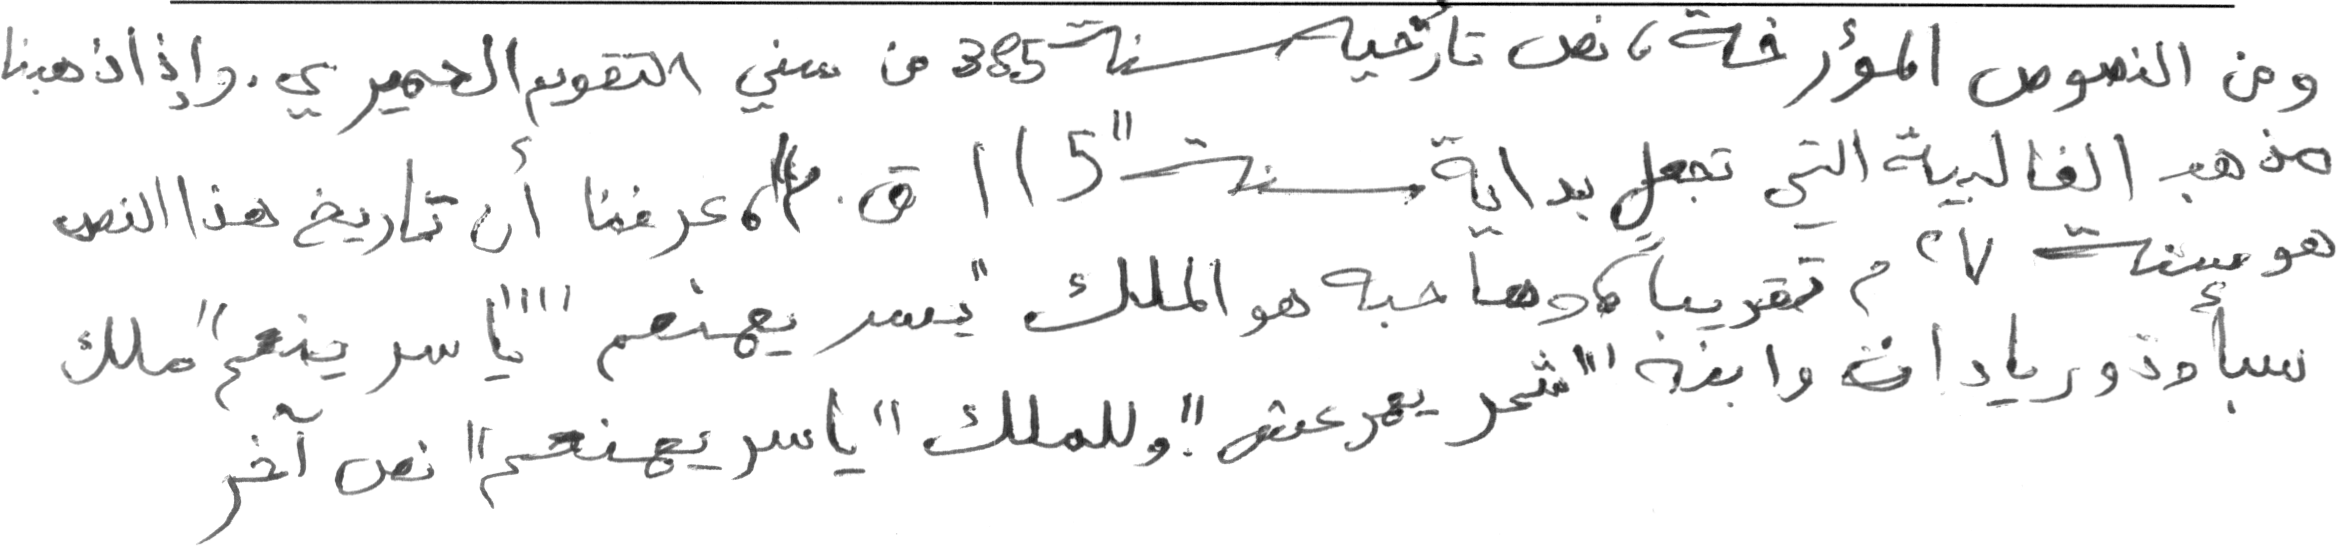 ومن النصوص المؤرخة، نص تأريخيه سنة 385 من سني التقويم الحميري. وإذا ذهبنا
مذهب الغالبية التي تجعل بداية سنة "115 ق. م"، عرفنا أن تاريخ هذا النص
هو سنة ٢٧ م تقريباً، وصاحبه هو الملك "يسر يهنعم" "ياسر ينعم" ملك
سبأ وذو ريدان وابنه "شمر يهرعش". وللملك "ياسر يهنعم" نص آخر